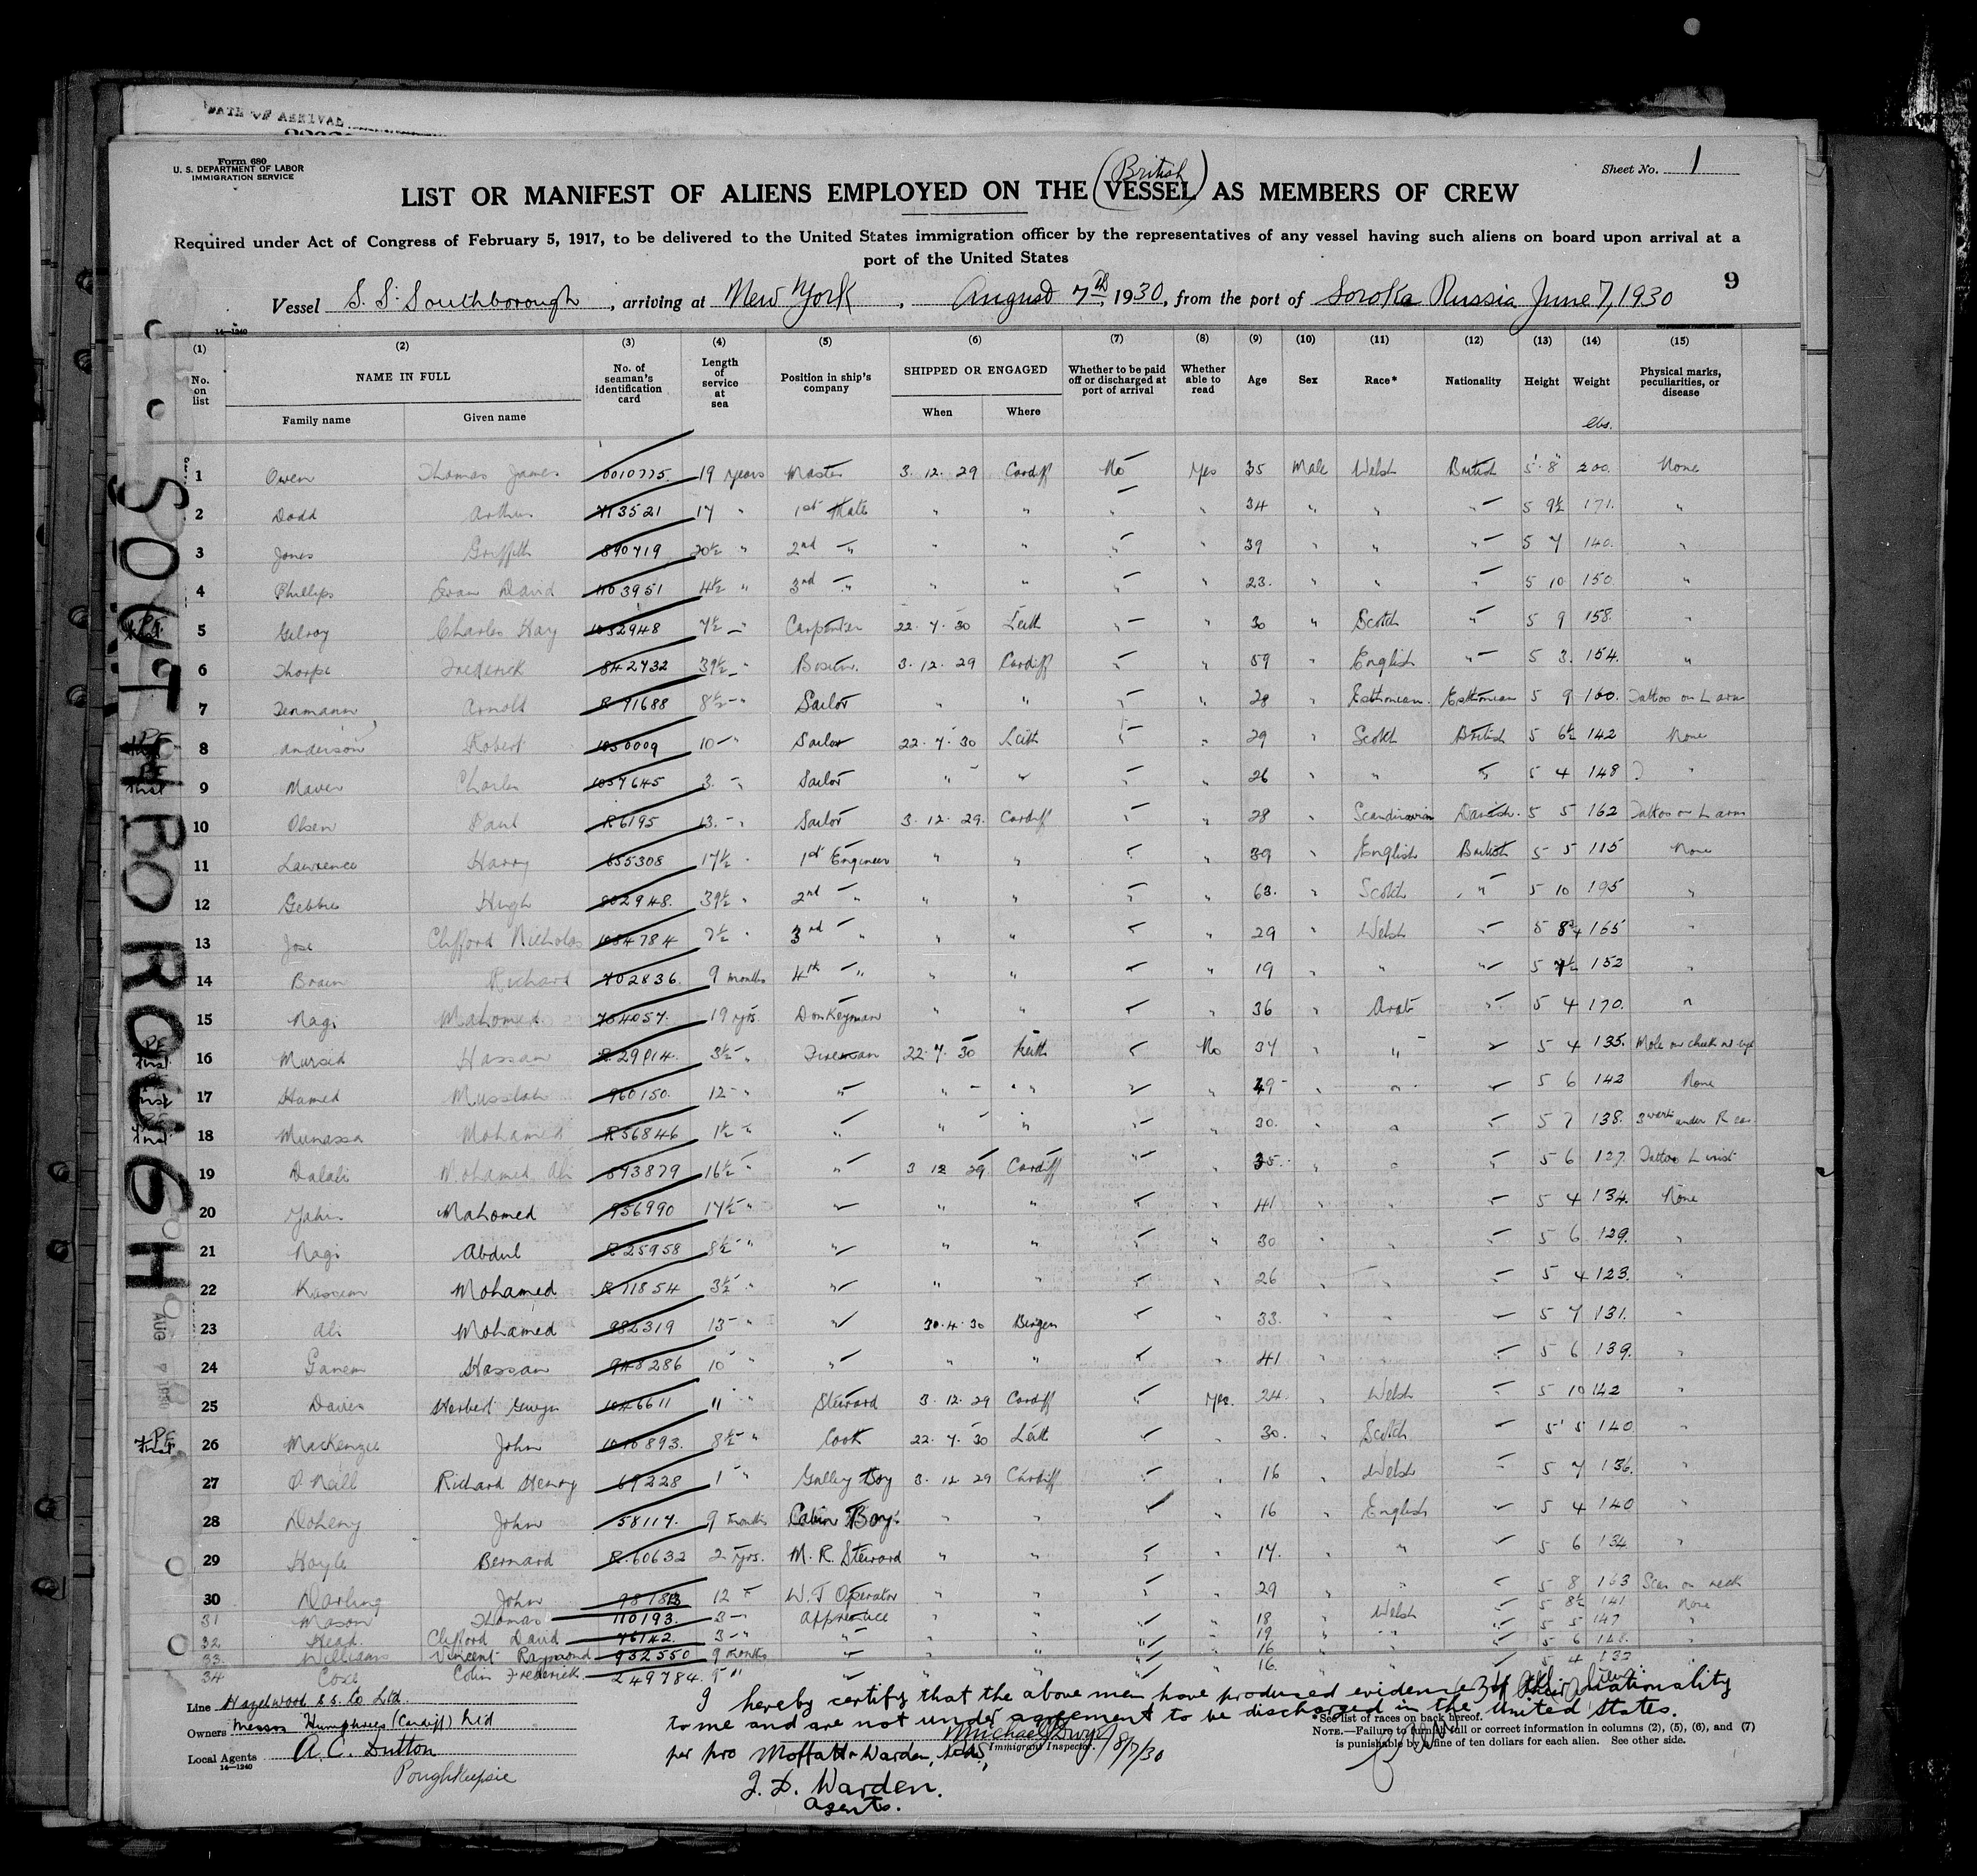 DATE OF ARRIVAL
Form 680
U. S. DEPARTMENT OF LABOR
IMMIGRATION SERVICE
Sheet No. 1
British
LIST OR MANIFEST OF ALIENS EMPLOYED ON THE (VESSEL) AS MEMBERS OF CREW
Required under Act of Congress of February 5, 1917, to be delivered to the United States immigration officer by the representatives of any vessel having such aliens on board upon arrival at a
port of the United States
9
Vessel S.S. Southborough, arriving at New York, August 7th, 1930, from the port of Soroka Russia June 7, 1930
14—1240
(1) (2) (3) (4) (5) (6) (7) (8) (9) (10) (11) (12) (13) (14) (15)
No. on list NAME IN FULL No. of seaman's identification card Length of service at sea Position in ship's company SHIPPED OR ENGAGED Whether to be paid off or discharged at port of arrival Whether able to read Age Sex Race* Nationality Height Weight Physical marks, peculiarities, or disease
Family name Given name When Where lbs.
1 Owen Thomas James 0010775 19 years Master 3.12.29 Cardiff No Yes 35 Male Welsh British 5' 8" 200. None
2 Dodd Arthur 713521 17 " 1st Mate " " " 34 " " " 5 9½ 171. "
3 Jones Griffith 890719 20½ " 2nd " " " " " 39 " " " 5 7 140. "
4 Phillips Evan David 1103951 4½ " 3rd " " " " " 23. " " " 5 10 150. "
5 Gilroy Charles Hay 1032948 7½ " Carpenter 22.7.30 Leith " " 30 " Scotch " 5 9 158. "
6 Thorpe Frederick 842732 39½ " Bosun. 3.12.29 Cardiff " " 59 " English " 5 3. 154. "
7 Arnold R 91688 8½ " Sailor " " " " 28 " Esthonian. Esthonian 5 9 160. Tattoo on L arm
8 Anderson Robert 1050009 10 " Sailor 22.7.30 Leith " " 29 " Scotch British 5 6½ 142 None
9 Maver Charles 1057645 3 " Sailor " " " " 26 " " " 5 4 148 "
10 Olsen Paul R 6195 13 " Sailor 3.12.29. Cardiff " " 28 " Scandinavian Danish. 5 5 162 Tattoo on L arm
11 Lawrence Harry 655308 17½ " 1st Engineer " " " " 39 " English British 5 5 115 None
12 Gebbie Hugh 802948. 39½ " 2nd " " " " " 63. " Scotch " 5 10 195 "
13 Jose Clifford Nicholas 1034784 7½ " 3rd " " " " " 29 " Welsh " 5 8¾ 165 "
14 Brain Richard 702836 9 months 4th " " " " " 19 " " " 5 7½ 152 "
15 Nagi Mahomed 754057. 19 yrs. Donkeyman " " " " 36 " Arab " 5 4 170. "
16 Mursid Hassan 3½ " Fireman 22.7.30 Leith " No 37 " " " 5 4 135. Mole on cheek
17 Hamed Musslah 960150. 12 " " " " " " 49 " " " 5 6 142 None
18 Munassa Mohamed R 56846 1½ " " " " " " 30. " " " 5 7 138. 3 warts under R ear
19 Dalali Mohamed Ali 893879 16½ " " 3 12 29 Cardiff " " 35. " " " 5 6 127. Tattoo L wrist
20 Mahomed 956990 17½ " " " " " " 41 " " " 5 4 134. None
21 Nagi Abdul R 25958 8½ " " " " " " 30 " " " 5 6 129. "
22 Kassem Mohamed R 11854 3½ " " " " " " 26 " " " 5 4 123. "
23 Ali Mohamed 982319 13 " " 30.4.30 Bergen " " 33. " " " 5 7 131. "
24 Ganem Hassan 948286 10 " " " " " " 41 " " " 5 6 139. "
25 Davies Herbert Gwyn 1046611 11 " Steward 3.12.29 Cardiff " Yes. 24. " Welsh " 5 10 142 "
26 MacKenzie John 1010893. 8½ " Cook 22.7.30 Leith " " 30. " Scotch " 5' 5 140 "
27 O'Neill Richard Henry 69228 1 " Galley Boy 3.12.29 Cardiff " " 16 " Welsh " 5 7 136. "
28 Doheny John 58117. 9 months Cabin Boy " " " " 16 " English " 5 4 140 "
29 Hoyle Bernard R. 60632 2 yrs. M. R. Steward " " " " 17. " " " 5 6 134 "
30 Darling John 12 " W. T Operator " " " " 29 " " " 5 8 163 Scar on neck
31 Mason Thomas 110193. 3 " Apprentice " " " " 18 " Welsh " 5 8½ 141 None
32 Head. Clifford David 76142. 3 " " " " " " 19 " " " 5 5 147 "
33. Williams Vincent Raymond 932550 9 months " " " " " 16 " " " 5 6 148. "
34. Cole Colin Frederick 249784. 9 " " " " " " 16. " " " 5 4 132
SOUTHBOROUGH
AUG 7 1930
Line Hazelwood S.S. Co Ltd.
Owners Messrs Humphries (Cardiff) Ltd
Local Agents A. C. Dutton
14—1240
Poughkeepsie
I hereby certify that the above men have produced evidence of their nationality
to me and are not under agreement to be discharged in the United States.
Immigrant Inspector. 8/7/30
per pro Moffatt & Warden,
J. D. Warden.
Agents.
*See list of races on back hereof.
NOTE.—Failure to furnish full or correct information in columns (2), (5), (6), and (7)
is punishable by a fine of ten dollars for each alien. See other side.